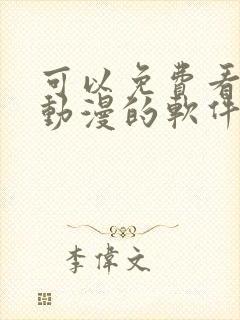 可以免費看
動漫的軟件
李偉文